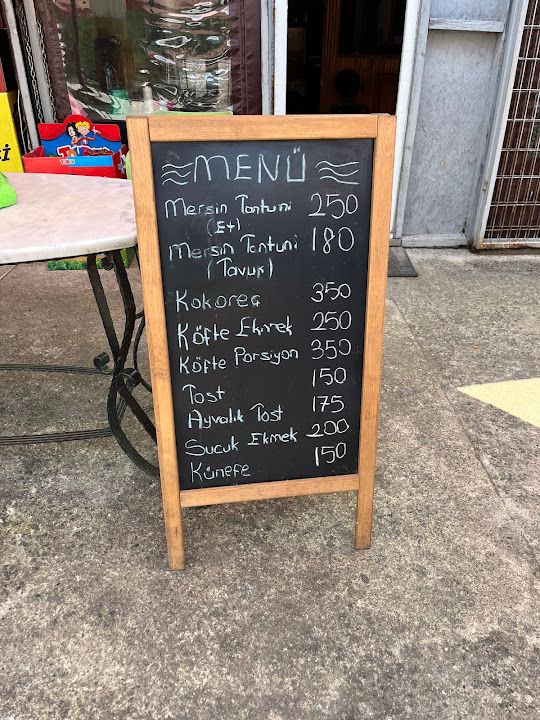 MENÜ
Mersin Tantuni 250
(Et)
Mersin Tantuni 180
(Tavuk)
Kokoreç 350
Köfte Ekmek 250
Köfte Porsiyon 350
Tost 150
Ayvalık Tost 175
Sucuk Ekmek 200
Künefe 150